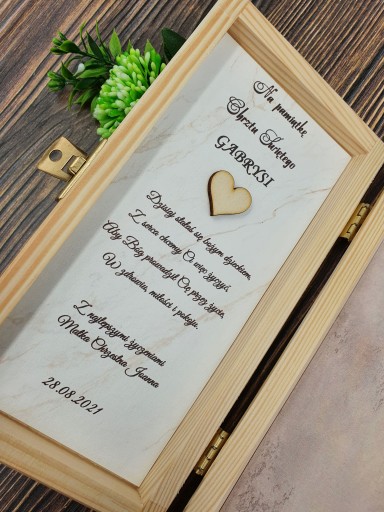 Na pamiątkę
Chrztu Świętego
GABRYSI
Dzisiaj stałaś się bożym dzieckiem,
Z serca chcemy Ci więc życzyć,
Aby Bóg prowadził Cię przez życie,
W zdrowiu, miłości i pokoju.
Z najlepszymi życzeniami
Matka Chrzestna Joanna
28.08.2021